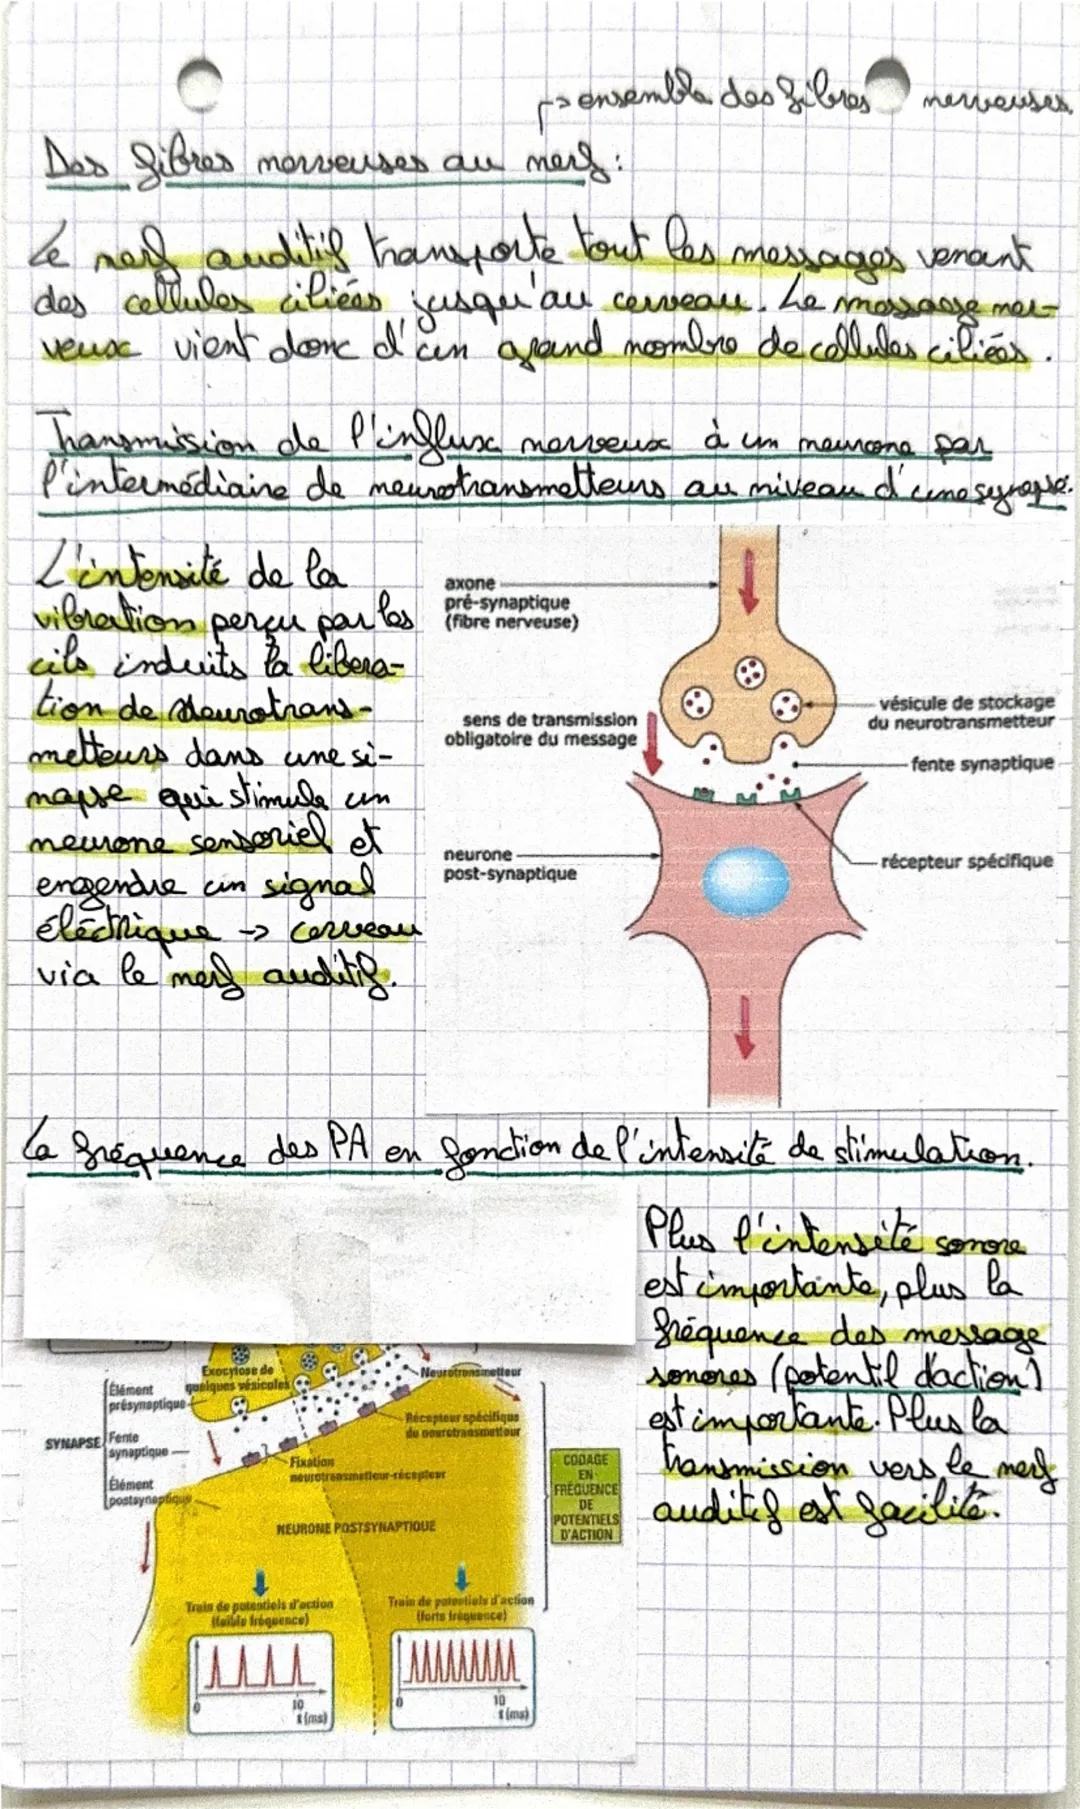 ↱> ensemble des fibres nerveuses.
Des fibres nerveuses au nerf :
Le nerf auditif transporte tout les messages venant
des cellules ciliées jusqu'au cerveau. Le message ner-
veux vient donc d'un grand nombre de cellules ciliées.
Transmission de l'influx nerveux à un neurone par
l'intermédiaire de neurotransmetteurs au niveau d'une synapse.
L'intensité de la
vibration perçu par les
cils induits la libera-
tion de Neurotrans-
metteurs dans une si-
napse qui stimule un
neurone sensoriel et
engendre un signal
éléctrique -> cerveau
via le nerf auditif.
axone
pré-synaptique
(fibre nerveuse)
sens de transmission
obligatoire du message
vésicule de stockage
du neurotransmetteur
fente synaptique
neurone
post-synaptique
récepteur spécifique
La fréquence des PA en fonction de l'intensité de stimulation.
Plus l'intensité sonore
est importante, plus la
fréquence des message
sonores (potentiel d'action)
est importante. Plus la
transmission vers le nerf
auditif est facilité.
Exocytose de
quelques vésicules
Neurotransmetteur
Élément
présynaptique
Récepteur spécifique
du neurotransmetteur
SYNAPSE
Fente
synaptique
Fixation
neurotransmetteur-récepteur
Élément
postsynaptique
NEURONE POSTSYNAPTIQUE
CODAGE
EN
FRÉQUENCE
DE
POTENTIELS
D'ACTION
Train de potentiels d'action
(faible fréquence)
Train de potentiels d'action
(forte fréquence)
0
10
t (ms)
0
10
t (ms)